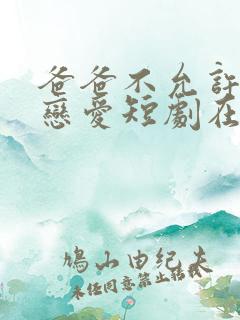 爸爸不允許
戀愛短劇在
鳩山由纪夫
未经同意禁止转载